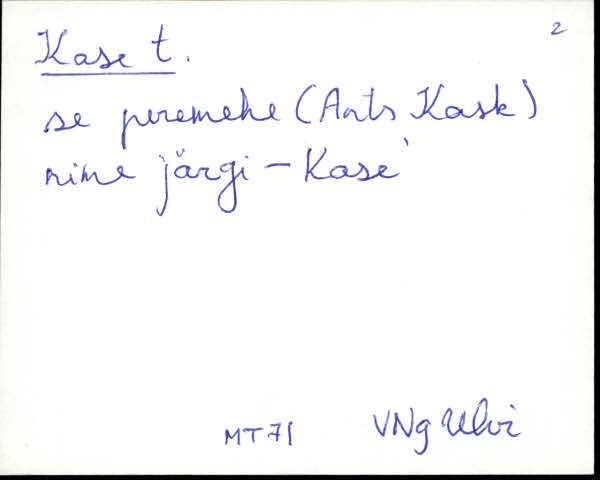 2
Kase t.
se peremehe (Ants Kask)
nime järgi – Kase`
MT 71 VNg Ulvi